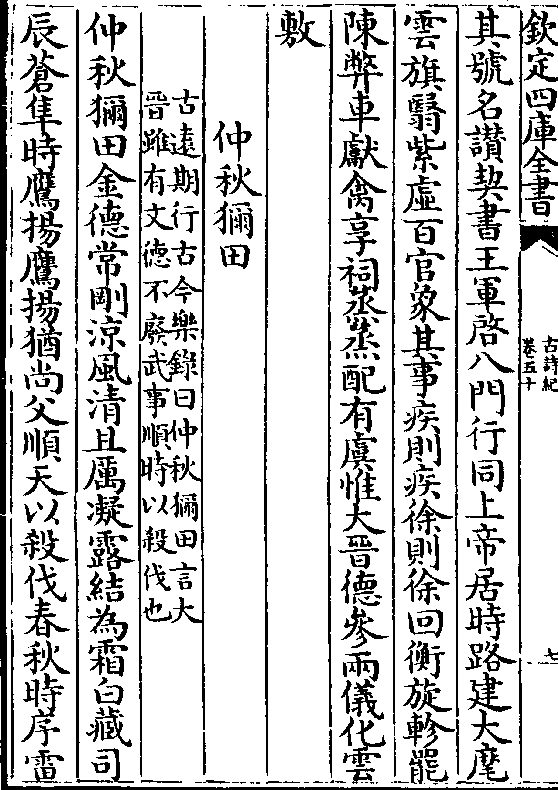 欽定四庫全書
古詩紀
卷五十
七
其號名讃契書王軍啓八門行同上帝居時路建大麾
雲旗翳紫虛百官象其事疾則疾徐則徐回衡旋軫罷
陳弊車獻禽享祠蒸蒸配有虞惟大晉德參兩儀化雲
敷
仲秋獮田
古遠期行古今樂錄曰仲秋獮田言大
晉雖有文德不廢武事順時以殺伐也
仲秋獮田金德常剛涼風清且厲凝露結為霜白藏司
辰蒼隼時鷹揚鷹揚猶尚父順天以殺伐春秋時序雷